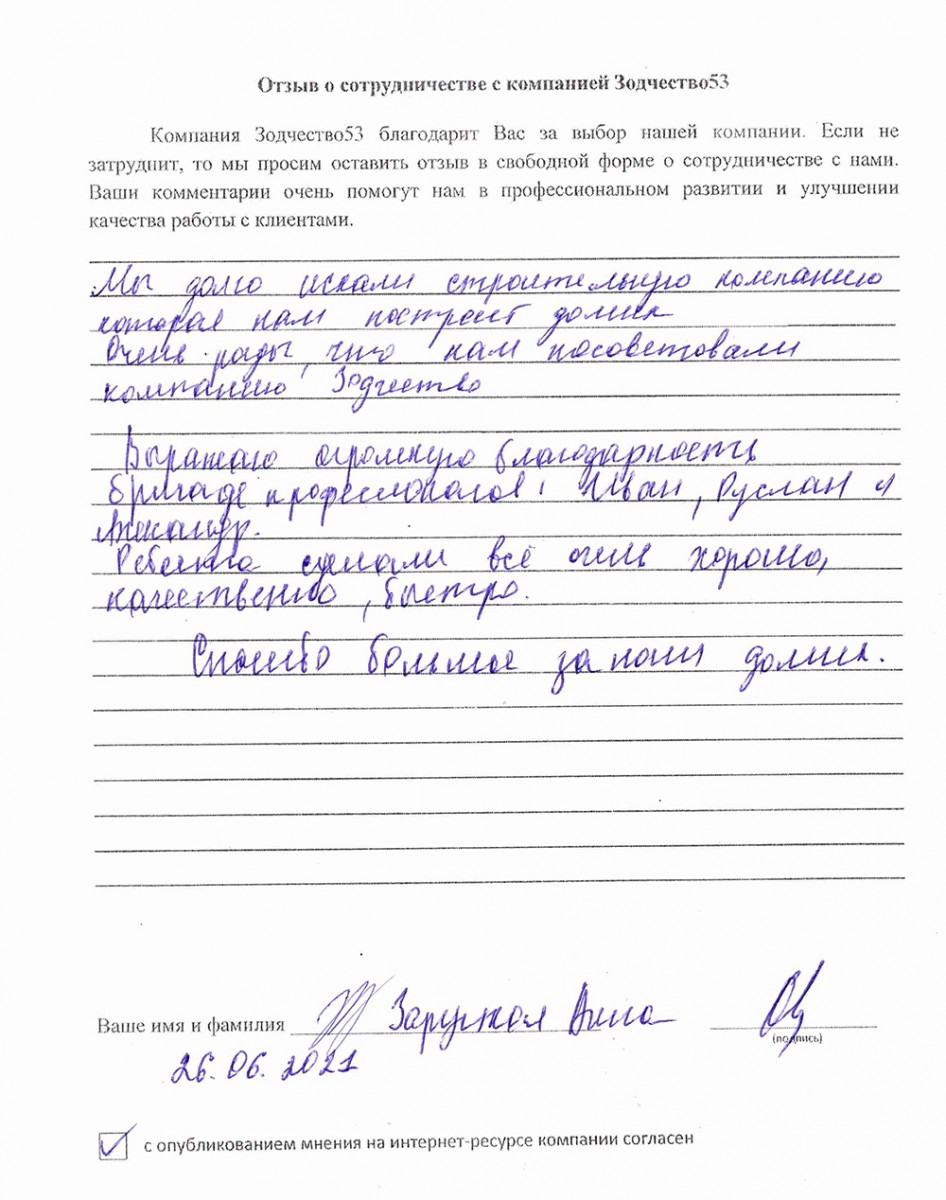 Отзыв о сотрудничестве с компанией Зодчество53
Компания Зодчество53 благодарит Вас за выбор нашей компании. Если не
затруднит, то мы просим оставить отзыв в свободной форме о сотрудничестве с нами.
Ваши комментарии очень помогут нам в профессиональном развитии и улучшении
качества работы с клиентами.
Мы долго искали строительную компанию
которая нам построит домик
Очень рады, что нам посоветовали
компанию Зодчество
Выражаю огромную благодарность
бригаде профессионалов: Иван, Руслан и
Александр.
Ребята сделали всё очень хорошо,
качественно, быстро.
Спасибо большое за наш домик.
Ваше имя и фамилия Анна
(подпись)
26.06.2021
с опубликованием мнения на интернет-ресурсе компании согласен